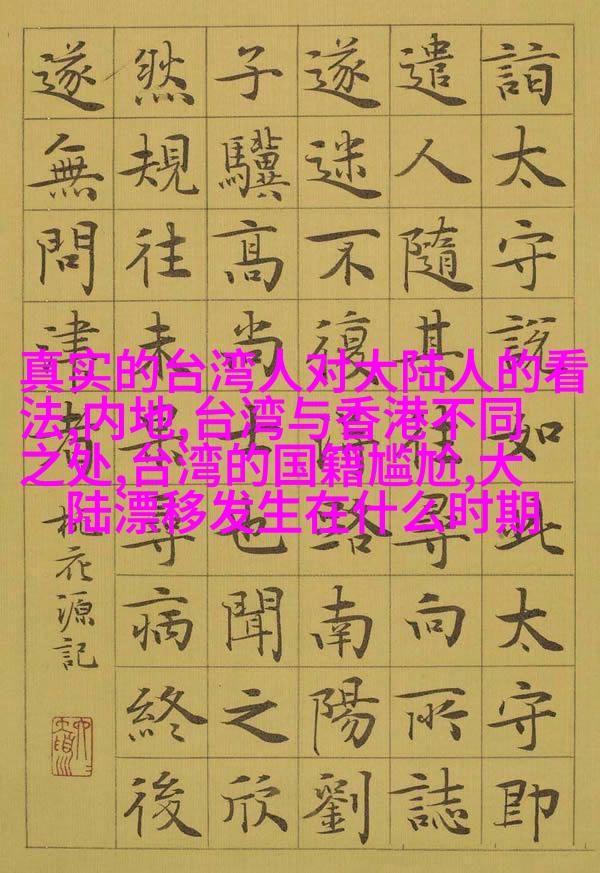 真实的台湾人对大陆人的看
法,内地,台湾与香港不同
之处,台湾的国籍尴尬,大
陆漂移发生在什么时期
詣太守說如此太守即
遣人隨其往尋向所誌
遂迷不復得路南陽劉
子驥高尚士也聞之欣
然規往未果尋病終後
遂無問津者
桃花源記